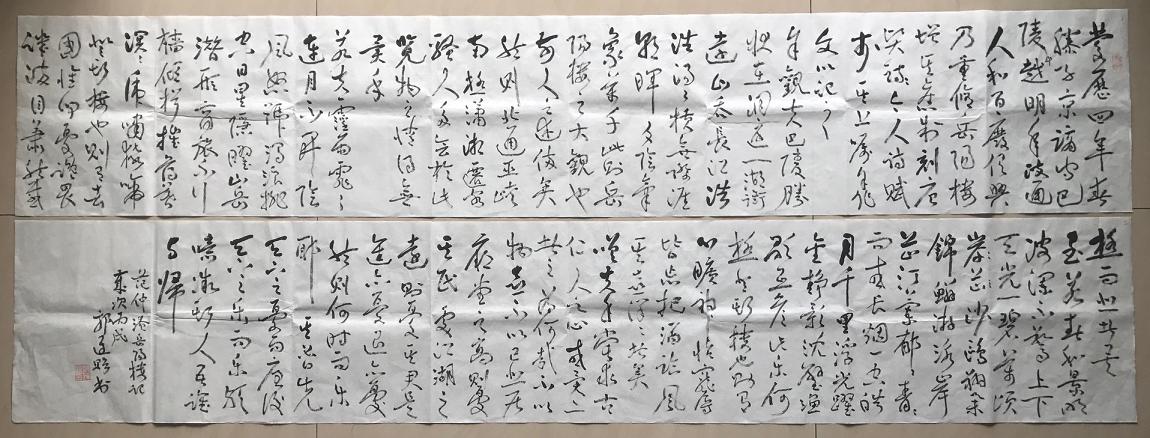 慶曆四年春
滕子京謫守巴
陵越明年政通
人和百廢俱興
乃重修岳陽樓
增其舊制刻唐
賢今人詩賦
於其上囑予作
文以記之
予觀夫巴陵勝
狀在洞庭一湖銜
遠山吞長江浩
浩湯湯橫無際涯
朝暉夕陰氣
象萬千此則岳
陽樓之大觀也
前人之述備矣
然則北通巫峽
南極瀟湘遷客
騷人多會於此
覽物之情得無
異乎
若夫霪雨霏霏
連月不開陰
風怒號濁浪排
空日星隱曜山岳
潛形商旅不行
檣傾楫摧薄暮
冥冥虎嘯猿啼
登斯樓也則有去
國懷鄉憂讒畏
譏滿目蕭然感
極而悲者矣
至若春和景明
波瀾不驚上下
天光一碧萬頃
岸芷沙鷗翔集
錦鱗游泳岸
芷汀蘭郁郁青青
而或長煙一空皓
月千里浮光躍
金靜影沈璧漁
歌互答此樂何
極登斯樓也則有
心曠神怡寵辱
皆忘把酒臨風
其喜洋洋者矣
嗟夫予嘗求古
仁人之心或異二
者之為何哉不以
物喜不以己悲居
廟堂之高則憂
其民處江湖之
遠則憂其君是
進亦憂退亦憂
然則何時而樂
耶其必曰先
天下之憂而憂後
天下之樂而樂歟
噫微斯人吾誰
與歸
范仲淹岳陽樓記
歲次丙戌
郭書